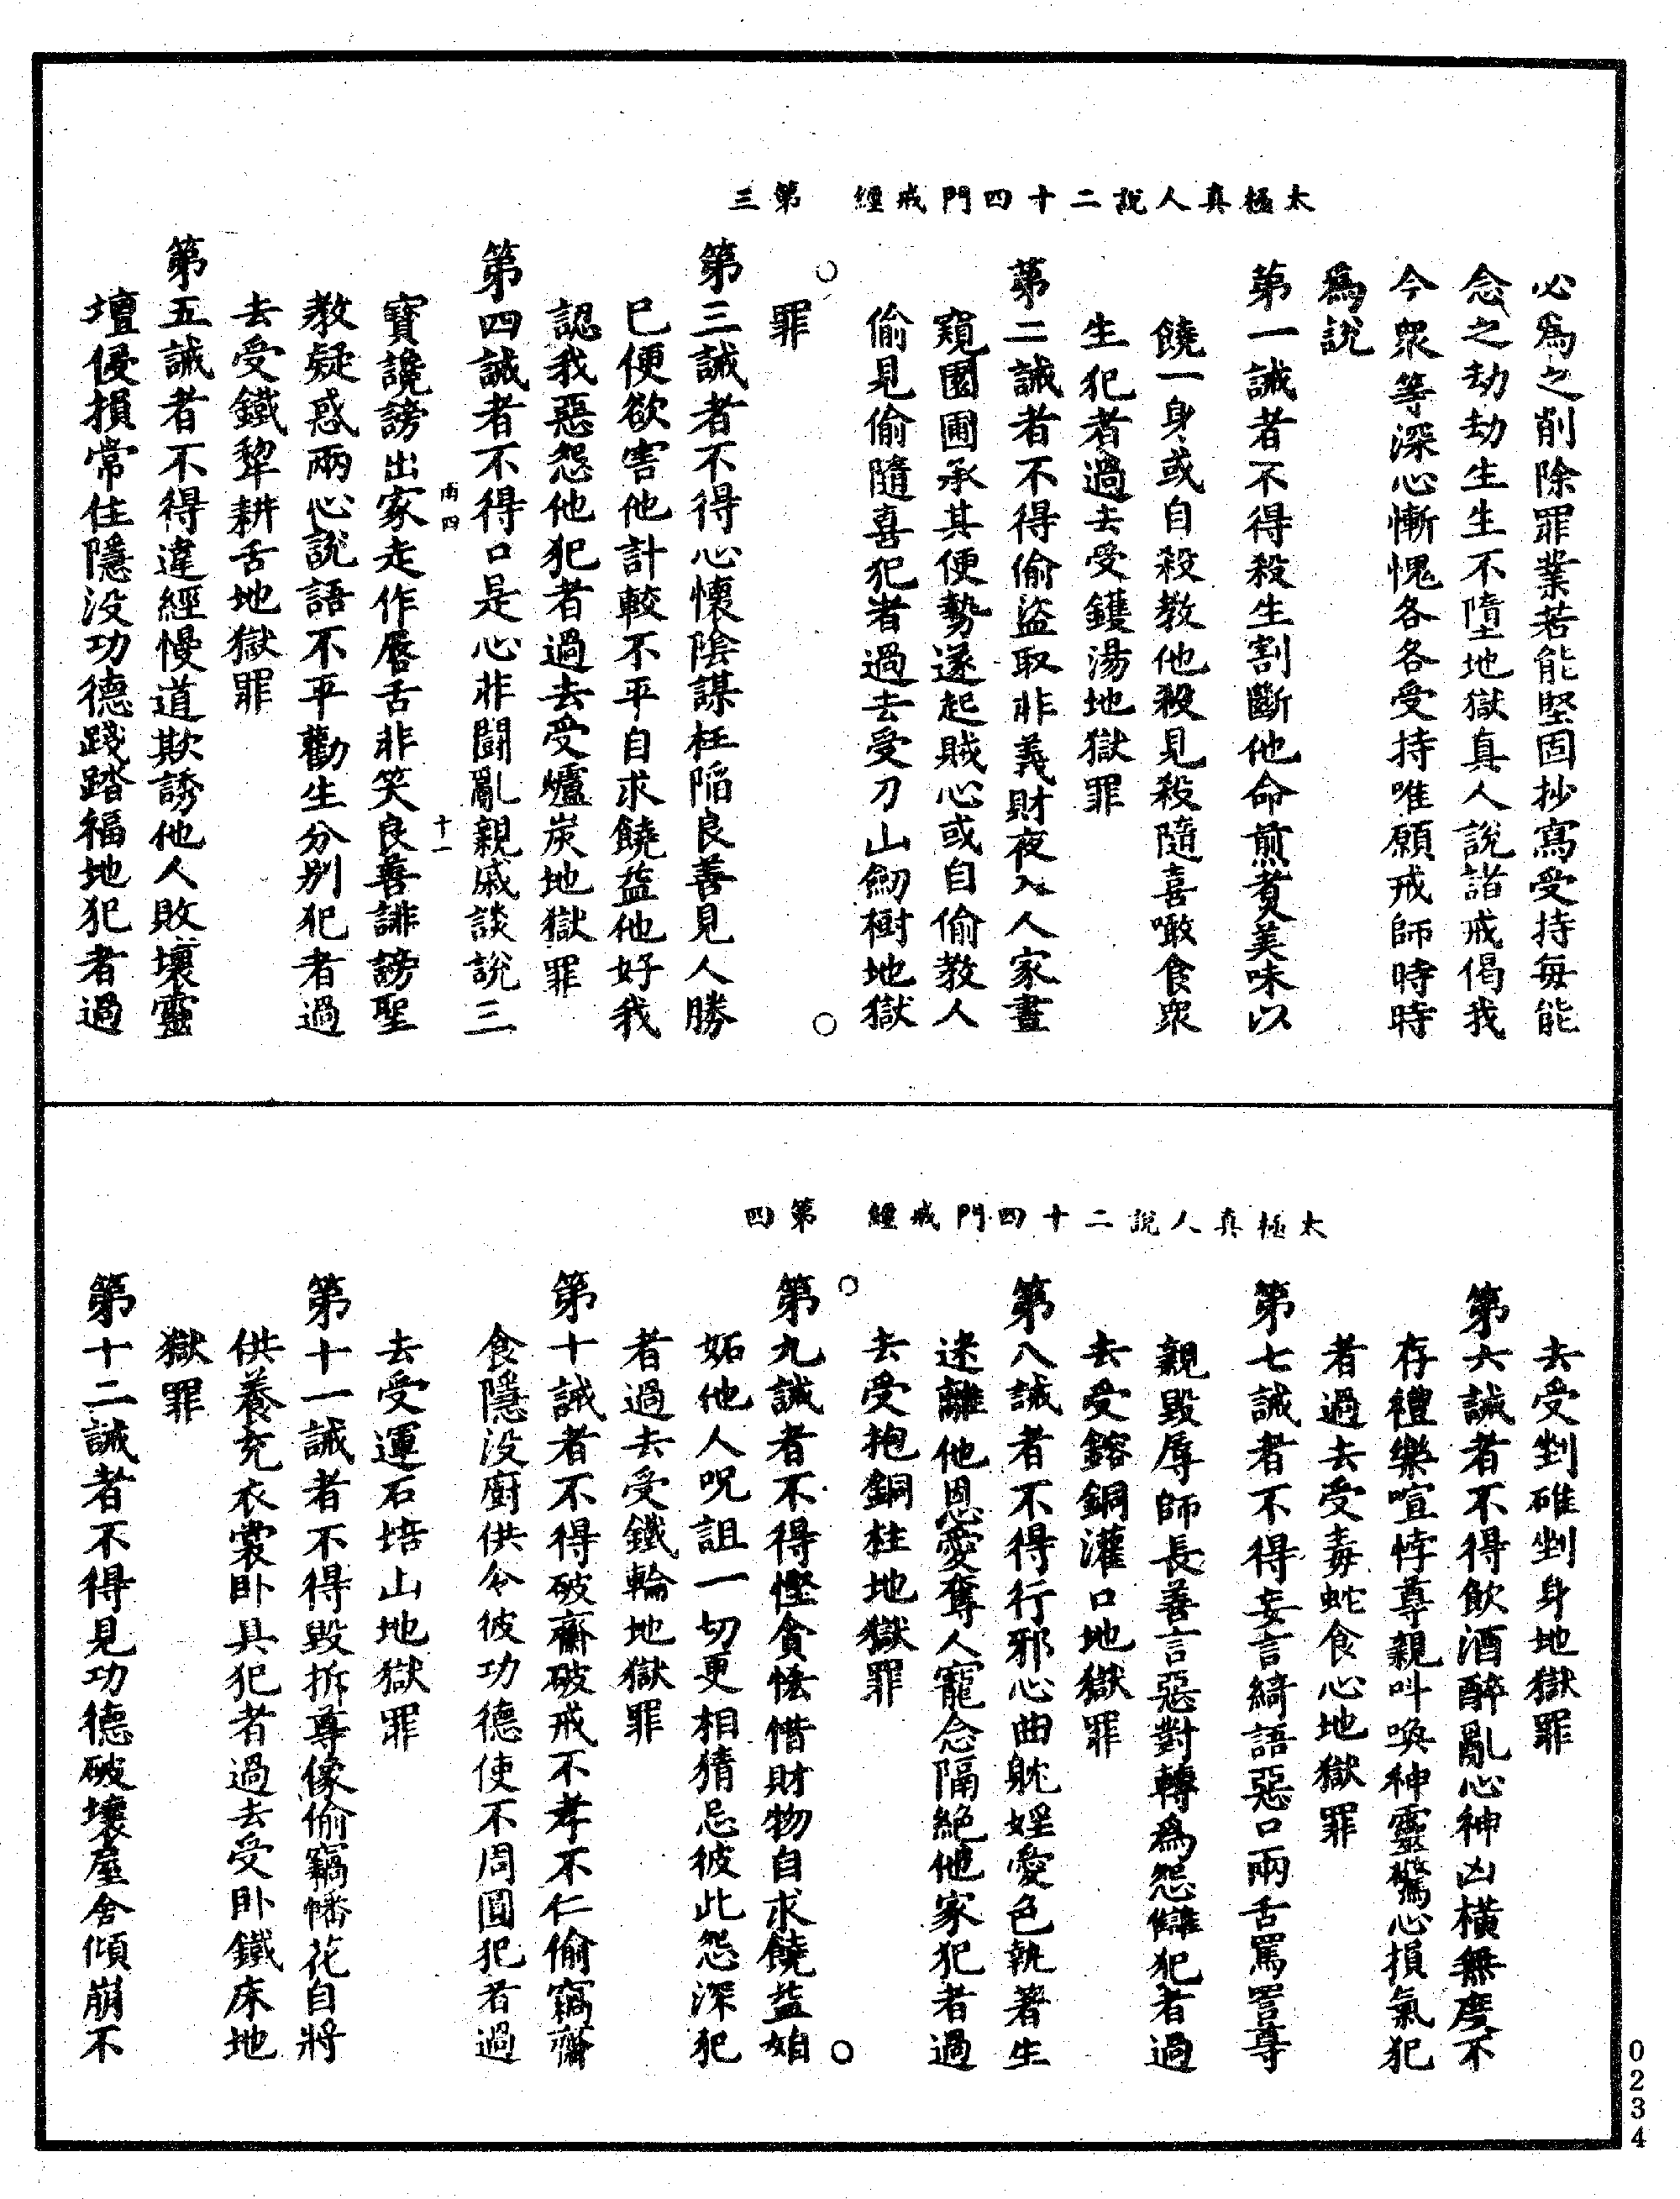 太極真人說二十四門戒經　第三
必為之削除罪業若能堅固抄寫受持每能
念之劫劫生生不墮地獄真人說諸戒偈我
今眾等深心慚愧各各受持唯願戒師時時
為說
第一誡者不得殺生割斷他命煎煑美味以
饒一身或自殺教他殺見殺隨喜噉食眾
生犯者過去受鑊湯地獄罪
第二誡者不得偷盜取非義財夜入人家晝
窺園圃承其便勢遂起賊心或自偷教人
偷見偷隨喜犯者過去受刀山劒樹地獄
罪
第三誡者不得心懷陰謀枉陷良善見人勝
已便欲害他計較不平自求饒益他好我
認我惡怨他犯者過去受爐炭地獄罪
第四誡者不得口是心非鬪亂親戚談說三
雨四　十一
寶讒謗出家走作唇舌非笑良善誹謗聖
教疑惑兩心說語不平勸生分別犯者過
去受鐵犂耕舌地獄罪
第五誡者不得違經慢道欺誘他人敗壞靈
壇侵損常住隱没功德踐踏福地犯者過
太極真人說二十四門戒經　第四
去受剉碓剉身地獄罪
第六誡者不得飲酒醉亂心神凶橫無度不
存禮樂喧悖尊親叫喚神靈驚心損氣犯
者過去受毒蛇食心地獄罪
第七誡者不得妄言綺語惡口兩舌罵詈尊
親毀辱師長善言惡對轉為怨讎犯者過
去受鎔銅灌口地獄罪
第八誡者不得行邪心曲躭婬愛色執著生
迷離他恩愛奪人寵念隔絕他家犯者過
去受抱銅柱地獄罪
第九誡者不得慳貪恡惜財物自求饒益妲
妬他人呪詛一切更相猜忌彼此怨深犯
者過去受鐵輪地獄罪
第十誡者不得破齋破戒不孝不仁偷竊齋
食隱没廚供令彼功德使不周圓犯者過
去受運石培山地獄罪
第十一誡者不得毀拆尊像偷竊幡花自將
供養充衣裳卧具犯者過去受卧鐵床地
獄罪
第十二誡者不得見功德破壞屋舍傾崩不
0234